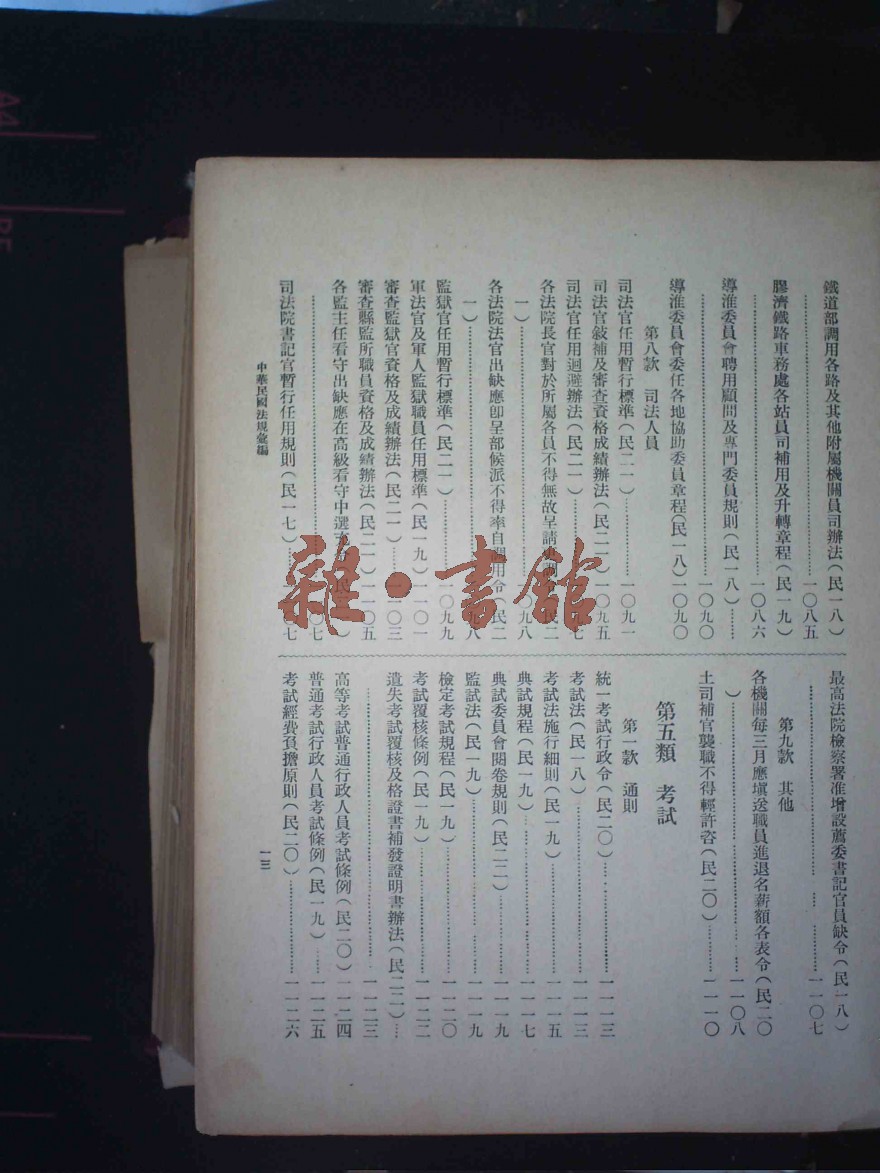 鐵道部調用各路及其他附屬機關員司辦法（民一八）
……一〇八五
膠濟鐵路車務處各站員司補用及升轉章程（民一九）
……一〇八六
導淮委員會聘用顧問及專門委員規則（民一八）……
……一〇九〇
導淮委員會委任各地協助委員章程（民一八）一〇九〇
第八款　司法人員
司法官任用暫行標準（民二一）……一〇九一
司法官敍補及審查資格成績辦法（民二一）一〇九五
司法官任用迴避辦法（民二一）……七
各法院長官對於所屬各員不得無故呈請　民二
一）……一〇九八
各法院法官出缺應卽呈部候派不得率自調用令（民二
一）……九八
監獄官任用暫行標準（民二一）……一〇九九
軍法官及軍人監獄職員任用標準（民一九）一一〇一
審查監獄官資格及成績辦法（民二一）……一一〇三
審查縣監所職員資格及成績辦法（民二一）一一〇五
各監主任看守出缺應在高級看守中選
……〇七
司法院書記官暫行任用規則（民一七）……〇七
最高法院檢察署准增設薦委書記官員缺令（民一八）
……一一〇七
第九款　其他
各機關每三月應塡送職員進退名薪額各表令（民二〇
）……一一〇八
土司補官襲職不得輕許咨（民二〇）……一一一〇
第五類　考試
第一款　通則
統一考試行政令（民二〇）……一一一三
考試法（民一八）……一一一三
考試法施行細則（民一九）……一一一五
典試規程（民一九）……一一一七
典試委員會閱卷規則（民二二）……一一一九
監試法（民一九）……一一一九
檢定考試規程（民一九）……一一二〇
考試覆核條例（民一九）……一一二二
遺失考試覆核及格證書補發證明書辦法（民二二）…
……一一二三
高等考試普通行政人員考試條例（民二〇）一一二四
普通考試行政人員考試條例（民一九）……一一二五
考試經費負擔原則（民二〇）……一一二六
中華民國法規彙編
一三
雜·書館
A4